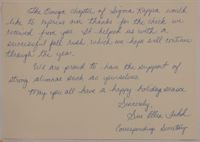 The Omega chapter of Sigma Kappa would
like to express our thanks for the check we
received from you. It helped us with a
successful fall rush which we hope will continue
through the year.
We are proud to have the support of
strong alumnae such as yourselves.
May you all have a happy holiday season
Sincerely,
Sue Ellen
Corresponding Secretary